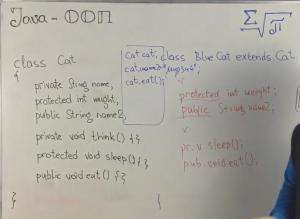 Java - ООП
Σ√π
class Cat
{
private String name;
protected int weight;
public String name2;
private void think() { }
protected void sleep() { }
public void eat() { }
}
Cat cat;
cat.eat();
class BlueCat extends Cat
protected int weight;
public String name2;
pr. v. sleep();
pub. void eat();
}